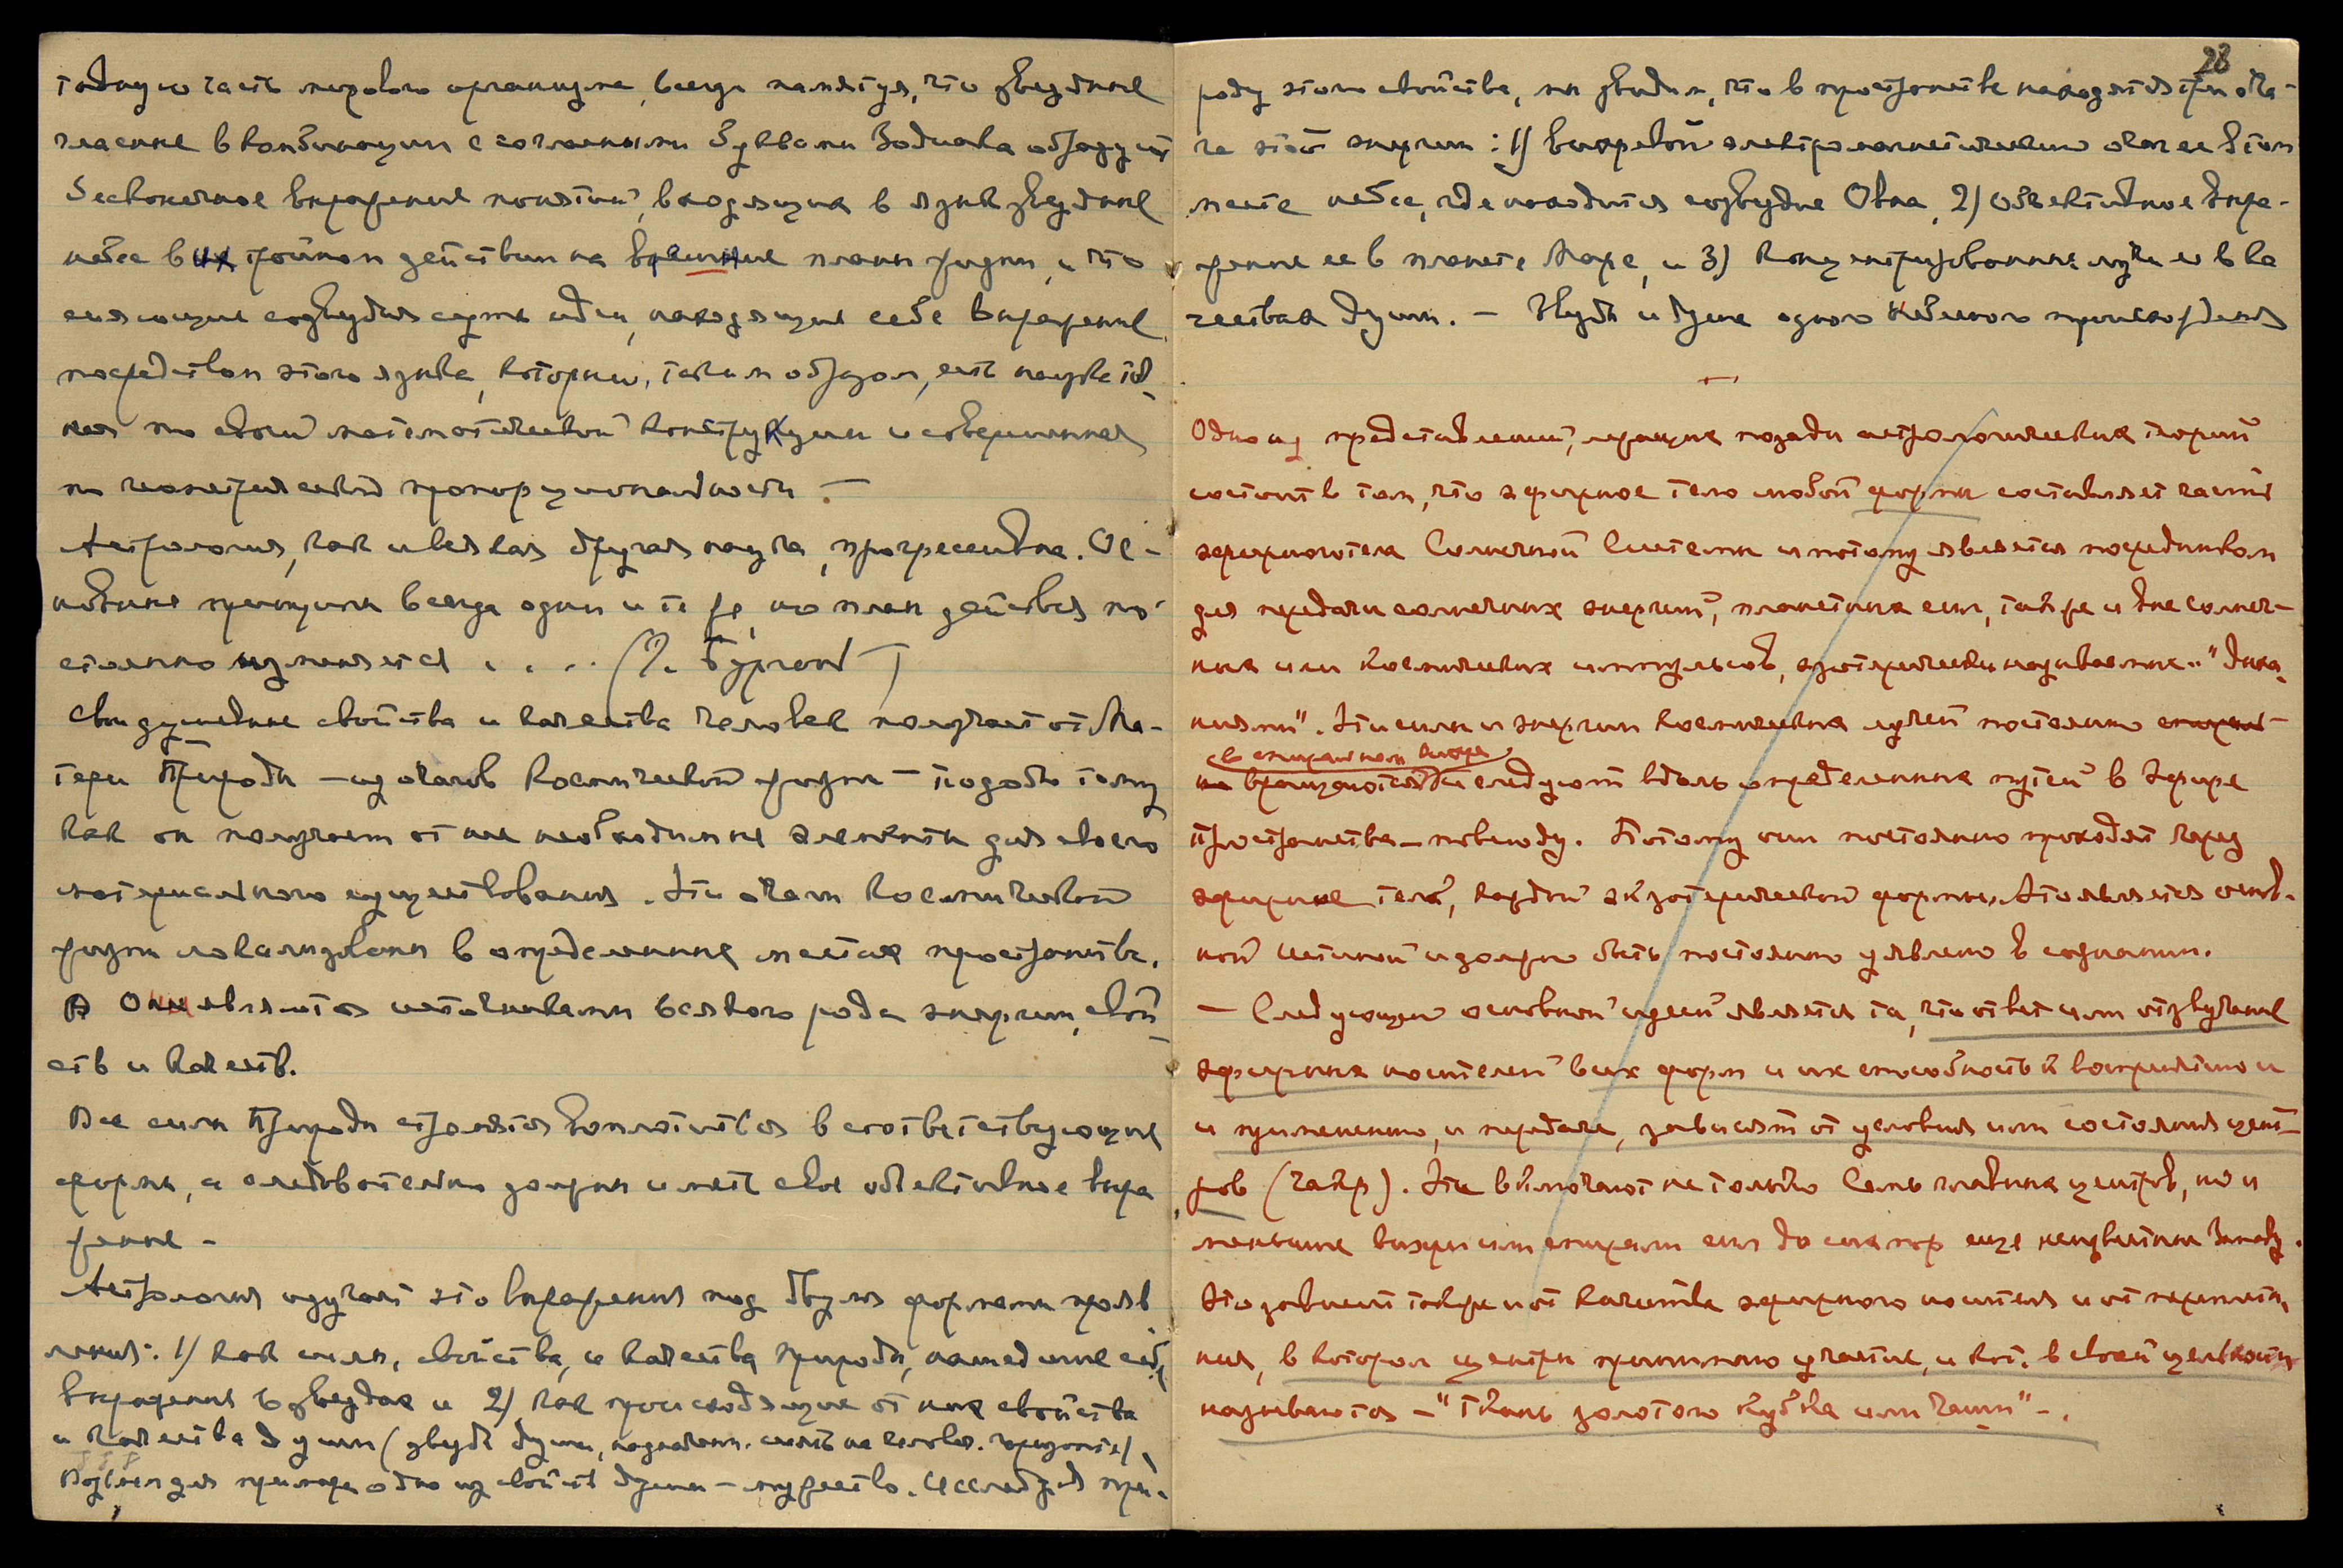 годную часть мирового организма, всегда памятуя, что звездные
гласные в комбинации с согласными буквами Зодиака образуют
бесконечное выражение понятий, входящих в язык звездные
небес в их тройном действии на внешние планы жизни, и что
сияющие созвездия суть идеи, находящие себе выражение
посредством этого языка, который, таким образом, есть наука точ-
ная по своей математической конструкции и совершенная
по геометрической пропорциональности. —
Астрология, как и всякая другая наука, прогрессивна. Ос-
новные принципы всегда одни и те же, но план действия по-
стоянно изменяется . . . . (Т. Бургон)
Свои душевные свойства и качества человек получает от Ма-
тери Природы — из очагов космической жизни — подобно тому
как он получает от нее необходимые элементы для своего
материального существования. Эти очаги космической
жизни локализованы в определенных местах пространства.
Они являются источниками всякого рода энергии, свой-
ств и качеств.
Все силы Природы стремятся воплотиться в соответствующие
формы, а следовательно должны иметь свое объективное выра
жение —
Астрология изучает это выражения под двумя формами прояв
ления: 1) как силы, свойства, и качества природы, нашедшие себе
выражения в звездах и 2) как происходящие от них свойства
и качества души (звезды души,
Возьмем для примера одно из свойств души — мужество. Исследуя при-
28
роду этого свойства, мы увидим, что в пространстве находятся три оча-
га этой энергии: 1) вихревой электромагнетический очаг ее в том
месте небес, где находится созвездие Овна, 2) объективное выра-
жение ее в планете Марс, и 3) концентрированные лучи ее в ка
чествах души. — Звезды и души одного небесного происхождения
—
Одно из представлений, лежащих позади астрологических теорий
состоит в том, что эфирное тело любой формы составляет часть
эфирного тела Солнечной Системы и потому является посредником
для передачи солнечных энергий, планетных сил, также и внесолнеч-
ных или космических импульсов, эзотерически называемых "дыха
ниями". Эти силы и энергии космических лучей постоянно
в спиральном вихре
вращаются и следуют вдоль определенных путей в эфире
Пространства — повсюду. Потому они постоянно проходят через
эфирные тела, каждой экзотерической формы. Это является основ-
ной истиной и должно быть постоянно уявлено в сознании.
— Следующей основной идеей является та, что ответ или отзвучание
эфирных носителей всех форм и их способность к восприятию и
и применению, и передаче, зависят от условия или состояния цент-
ров (чакр). Эти включают не только Семь главных центров, но и
меньшие вихри или спирали сил до сих пор еще неизвестны Западу.
Это зависит также и от качества эфирного носителя и от переплете-
ния, в котором центры принимают участие, и кот. в своей цельности
называются — "ткань золотого кубка или чаши" —.